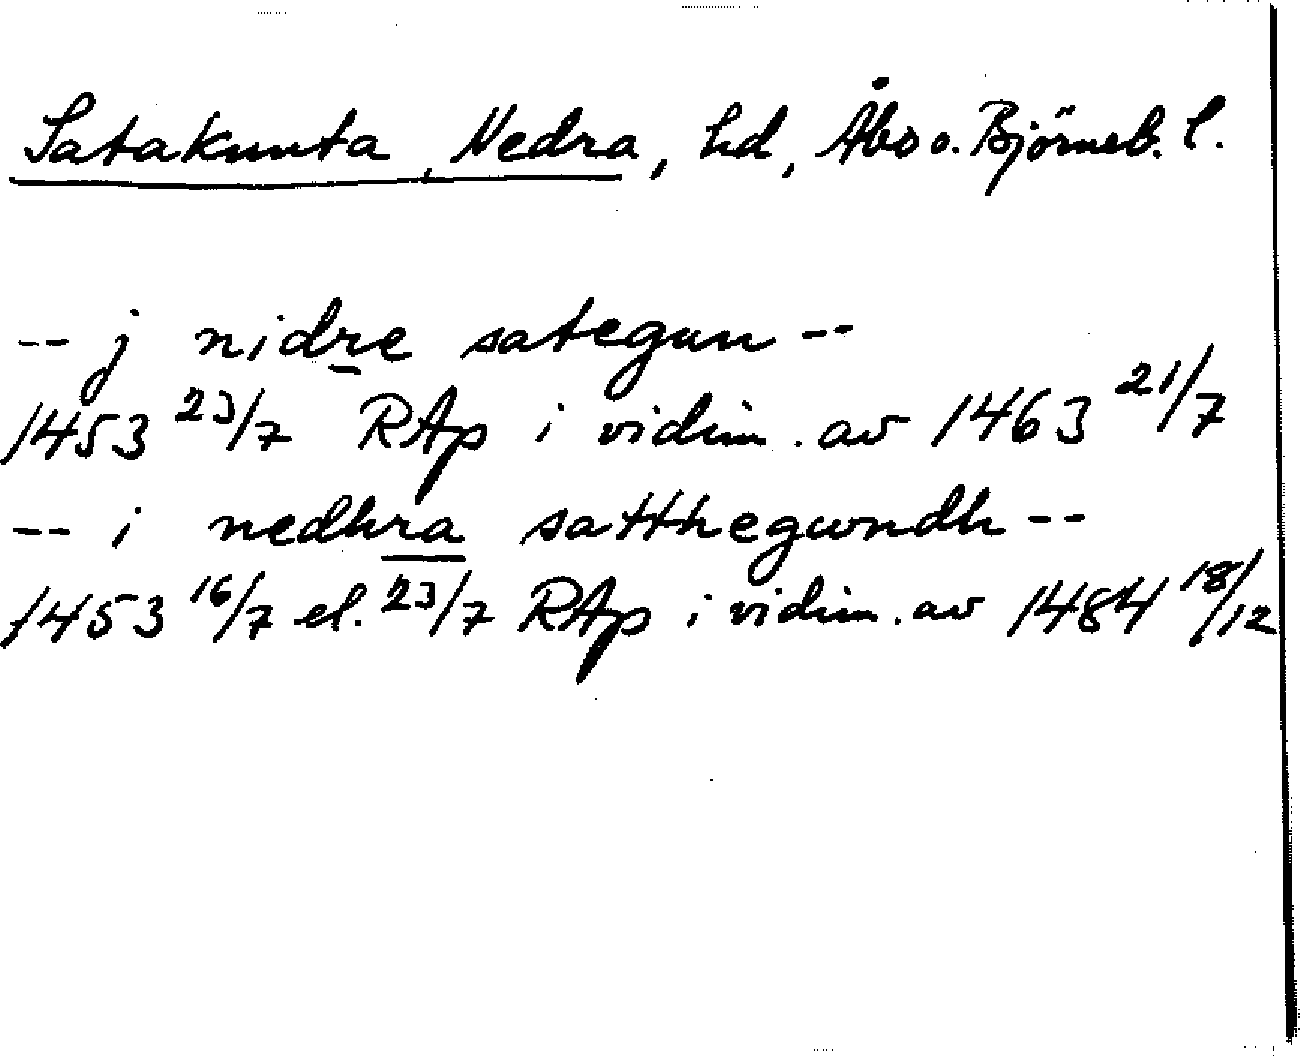 Satakunta, Nedra, hd, Åbo o. Björneb. l.
-- j nidre sategun --
1453 23/7 RAp i vidim. av 1463 21/7
-- i nedhra satthegwndh --
1453 16/7 el. 23/7 RAp i vidim. av 1484 18/12